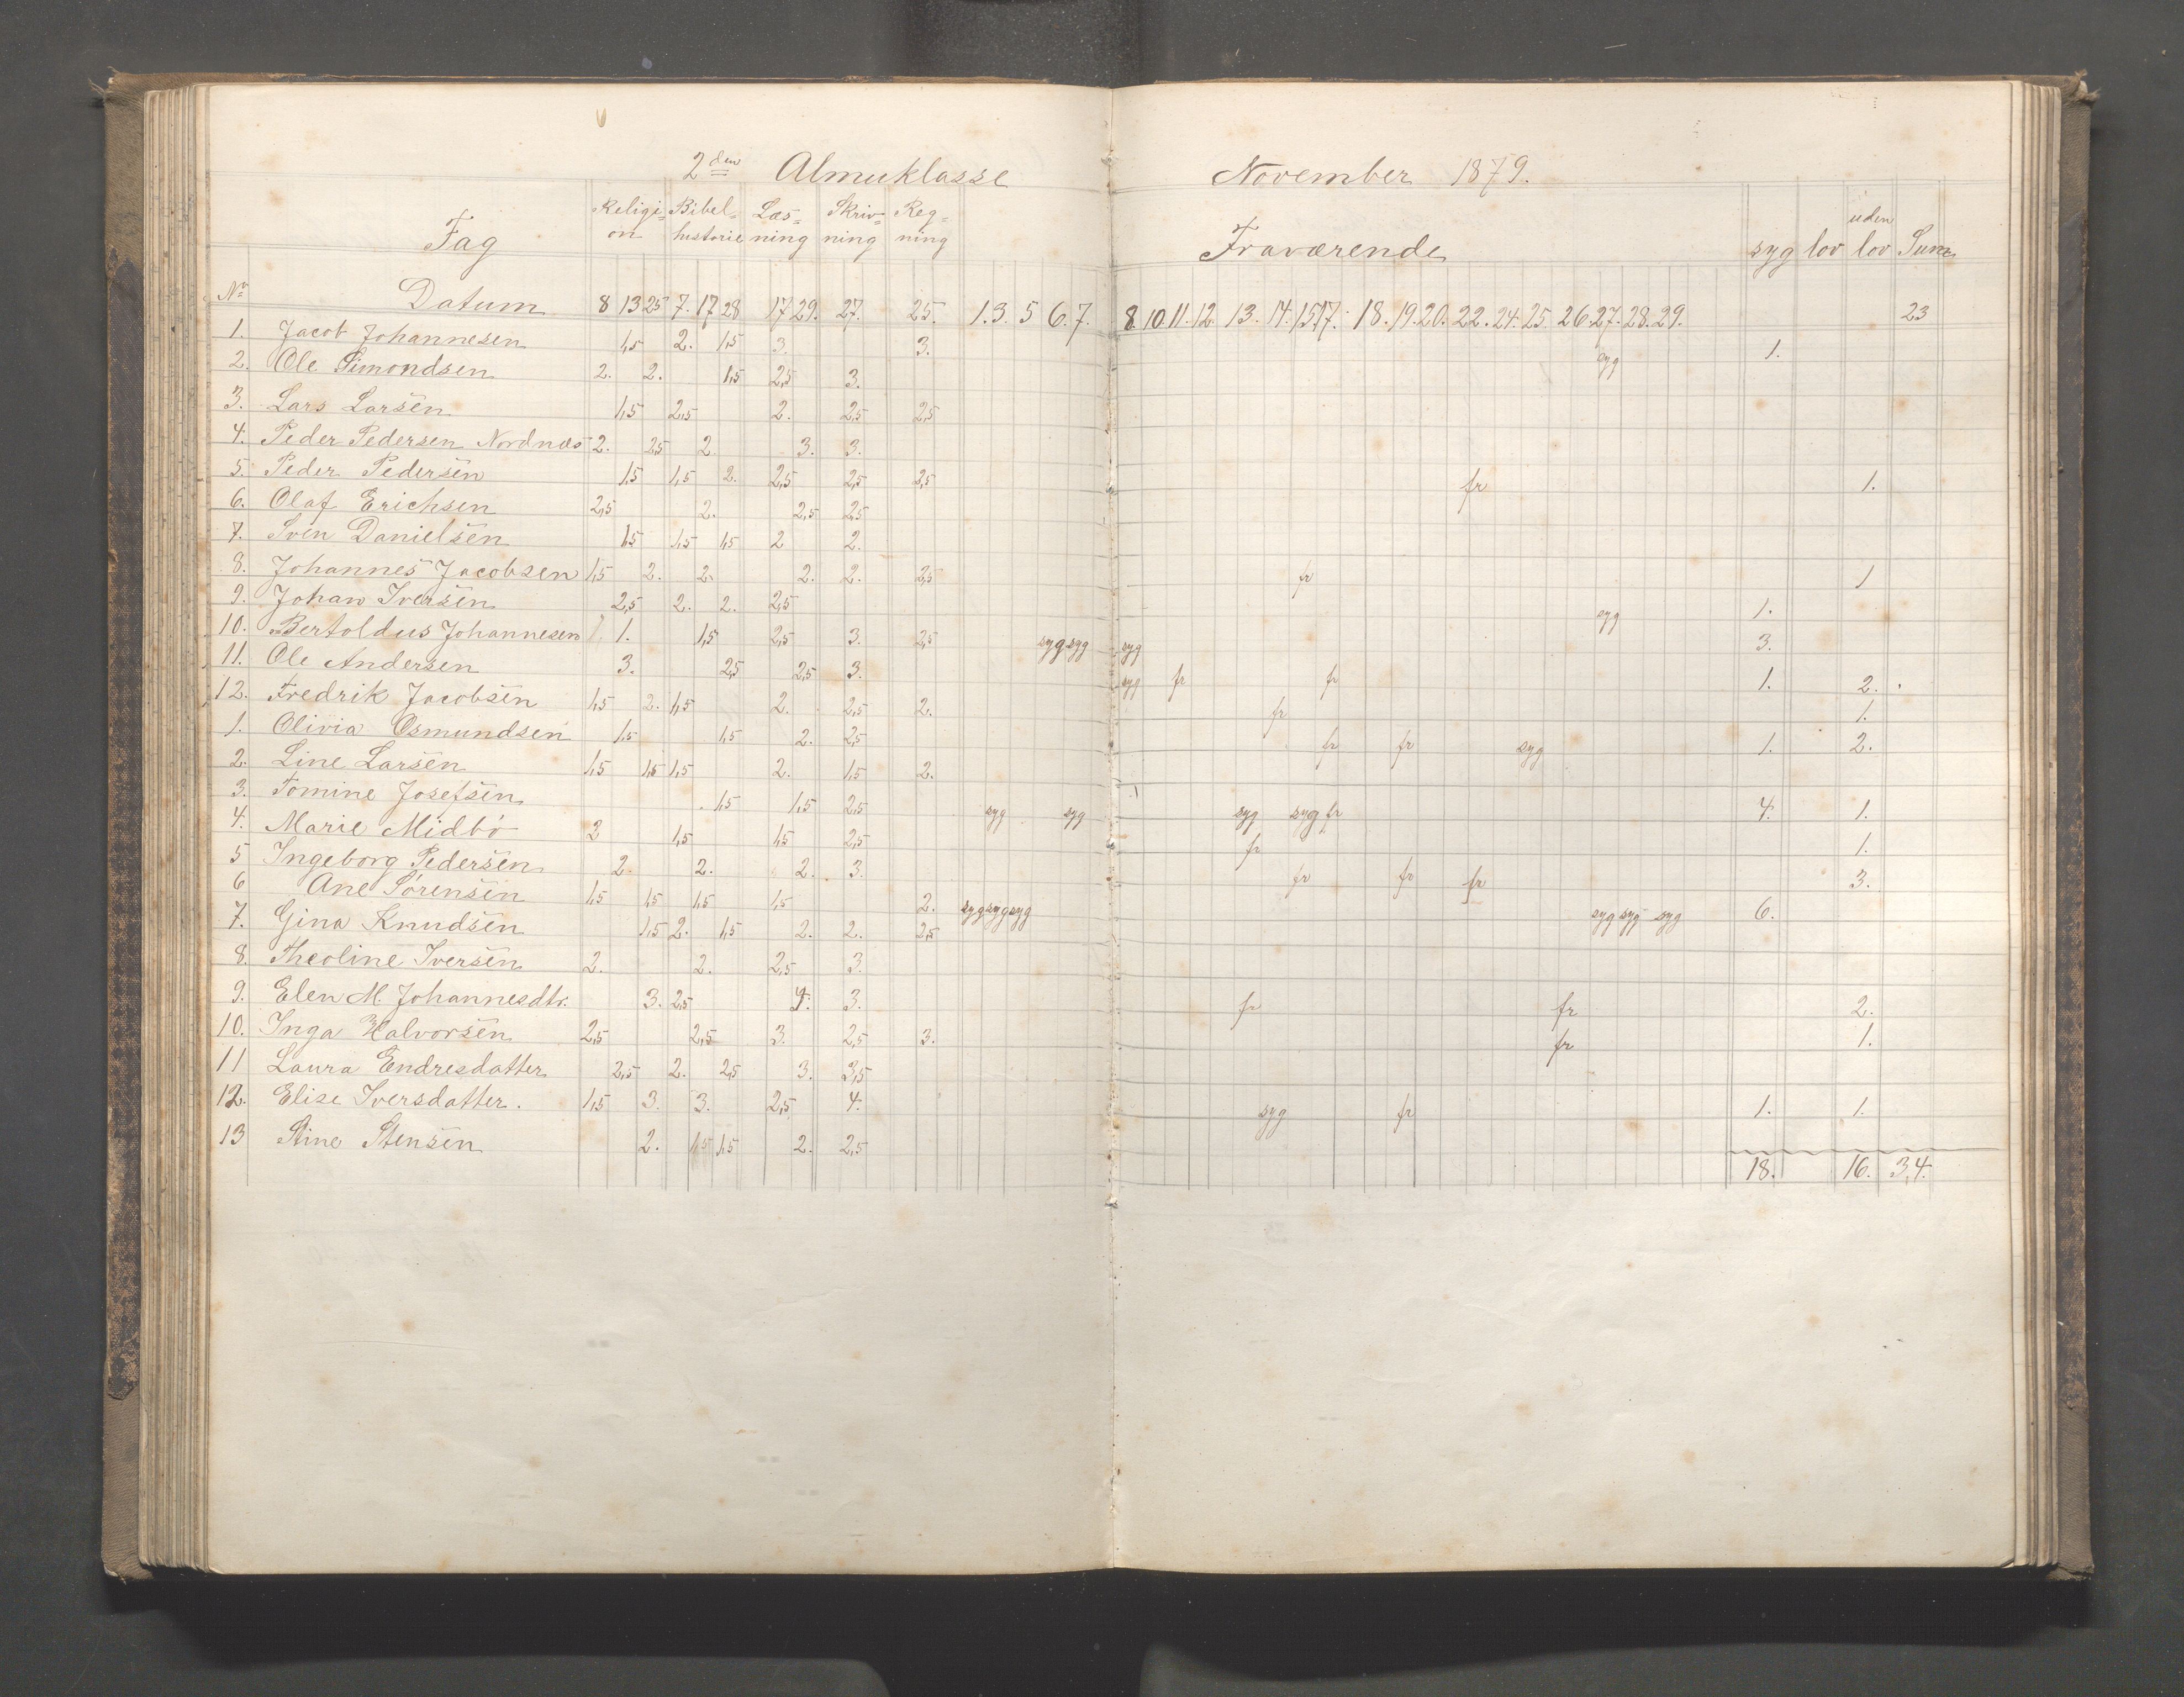 2den Almuklasse November 1879.
Religi= Bibel= Læs= Skriv= Reg=
on historie ning ning ning
Fag Fraværende syg lov uden lov Sum
No Datum 8 13 25 7. 17 28 17 29. 27. 25. 1. 3. 5 6. 7. 8. 10. 11. 12. 13. 14. 15. 17. 18. 19. 20. 22. 24. 25. 26. 27. 28. 29. 23
1. Jacob Johannesen 1,5 2. 1,5 3. 3. syg 1.
2. Ole Simondsen 2. 2. 1,5 2,5 3.
3. Lars Larsen 1,5 2,5 2. 2,5 2,5
4. Peder Pedersen Nordnæs 2. 2,5 2. 3. 3.
5. Peder Pedersen 1,5 1,5 2. 2,5 2,5 2,5 fr 1.
6. Olaf Erichsen 2,5 2. 2,5 2,5
7. Sven Danielsen 1,5 1,5 1,5 2 2.
8. Johannes Jacobsen 1,5 2. 2. 2. 2. 2,5 fr 1
9. Johan Iversen 2,5 2. 2. 2,5 syg 1.
10. Bertoldus Johannesen 1. 1,5 2,5 3. 2,5 syg syg syg 3.
11. Ole Andersen 3. 2,5 2,5 3. syg fr fr 1. 2.
12. Fredrik Jacobsen 1,5 2. 1,5 2. 2,5 2. fr 1.
1. Olivia Osmundsen 1,5 1,5 2. 2,5 fr fr syg 1. 2.
2. Line Larsen 1,5 1,5 1,5 2. 1,5 2.
3. Tomine Josefsen 1,5 1,5 2,5 syg syg syg syg fr 4. 1.
4. Marie Midbö 2 1,5 1,5 2,5 fr 1.
5 Ingeborg Pedersen 2. 2. 2. 3. fr fr fr 3.
6 Ane Sörensen 1,5 1,5 1,5 1,5 2. syg syg syg syg syg syg 6.
7. Gina Knudsen 1,5 2. 1,5 2. 2. 2,5
8. Theoline Iversen 2. 2. 2,5 3.
9. Elen M. Johannesdtr. 3. 2,5 4. 3. fr fr 2.
10. Inga Halvorsen 2,5 2,5 3. 2,5 3. fr 1.
11 Laura Endresdatter 2,5 2. 2,5 3. 3,5
12. Elise Iversdatter. 1,5 3. 3. 2,5 4. syg fr 1. 1.
13 Stine Stensen 2. 1,5 1,5 2. 2,5
18. 16. 34.